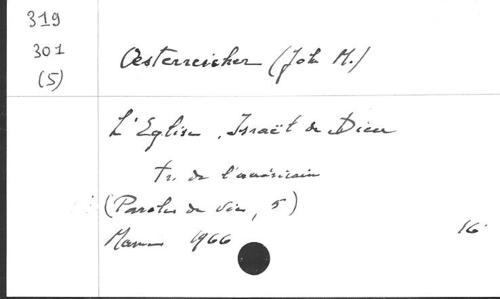 319
301
(5)
Oesterreicher (John M.)
L'Eglise, Israël de Dieu
tr. de l'américain
(Paroles de vie, 5)
Mame 1966
16